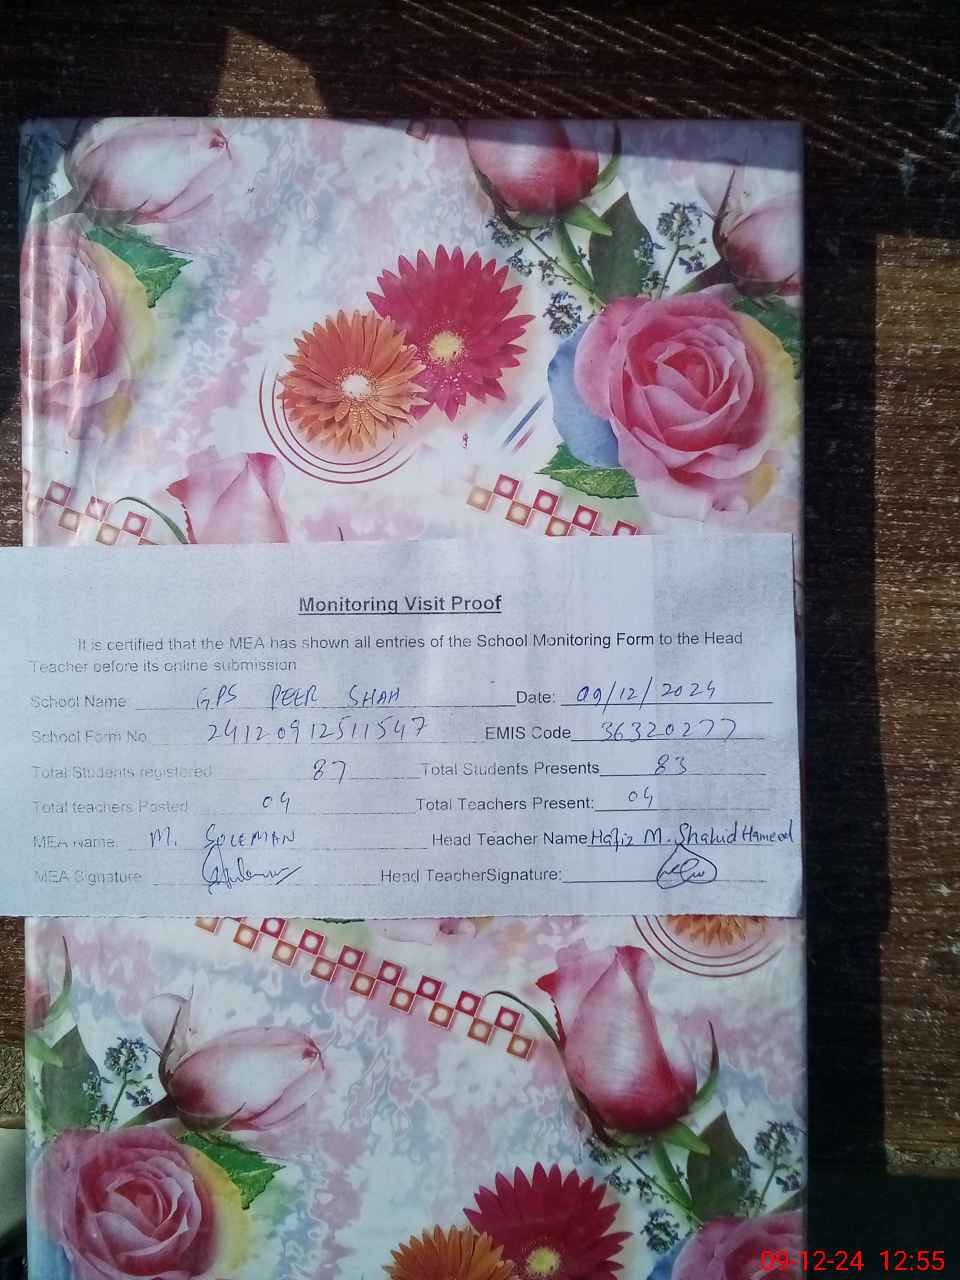 Monitoring Visit Proof
It is certified that the MEA has shown all entries of the School Monitoring Form to the Head
Teacher before its online submission
School Name: GPS PEER SHAH Date: 09/12/2024
School Form No 24120912511547 EMIS Code 36320277
Total Students registered 87 Total Students Presents 83
Total teachers Posted 04 Total Teachers Present: 04
MEA Name: M. SULEMAN Head Teacher Name Hafiz M. Shahid Hameed
MEA Signature Head TeacherSignature:
09-12-24 12:55